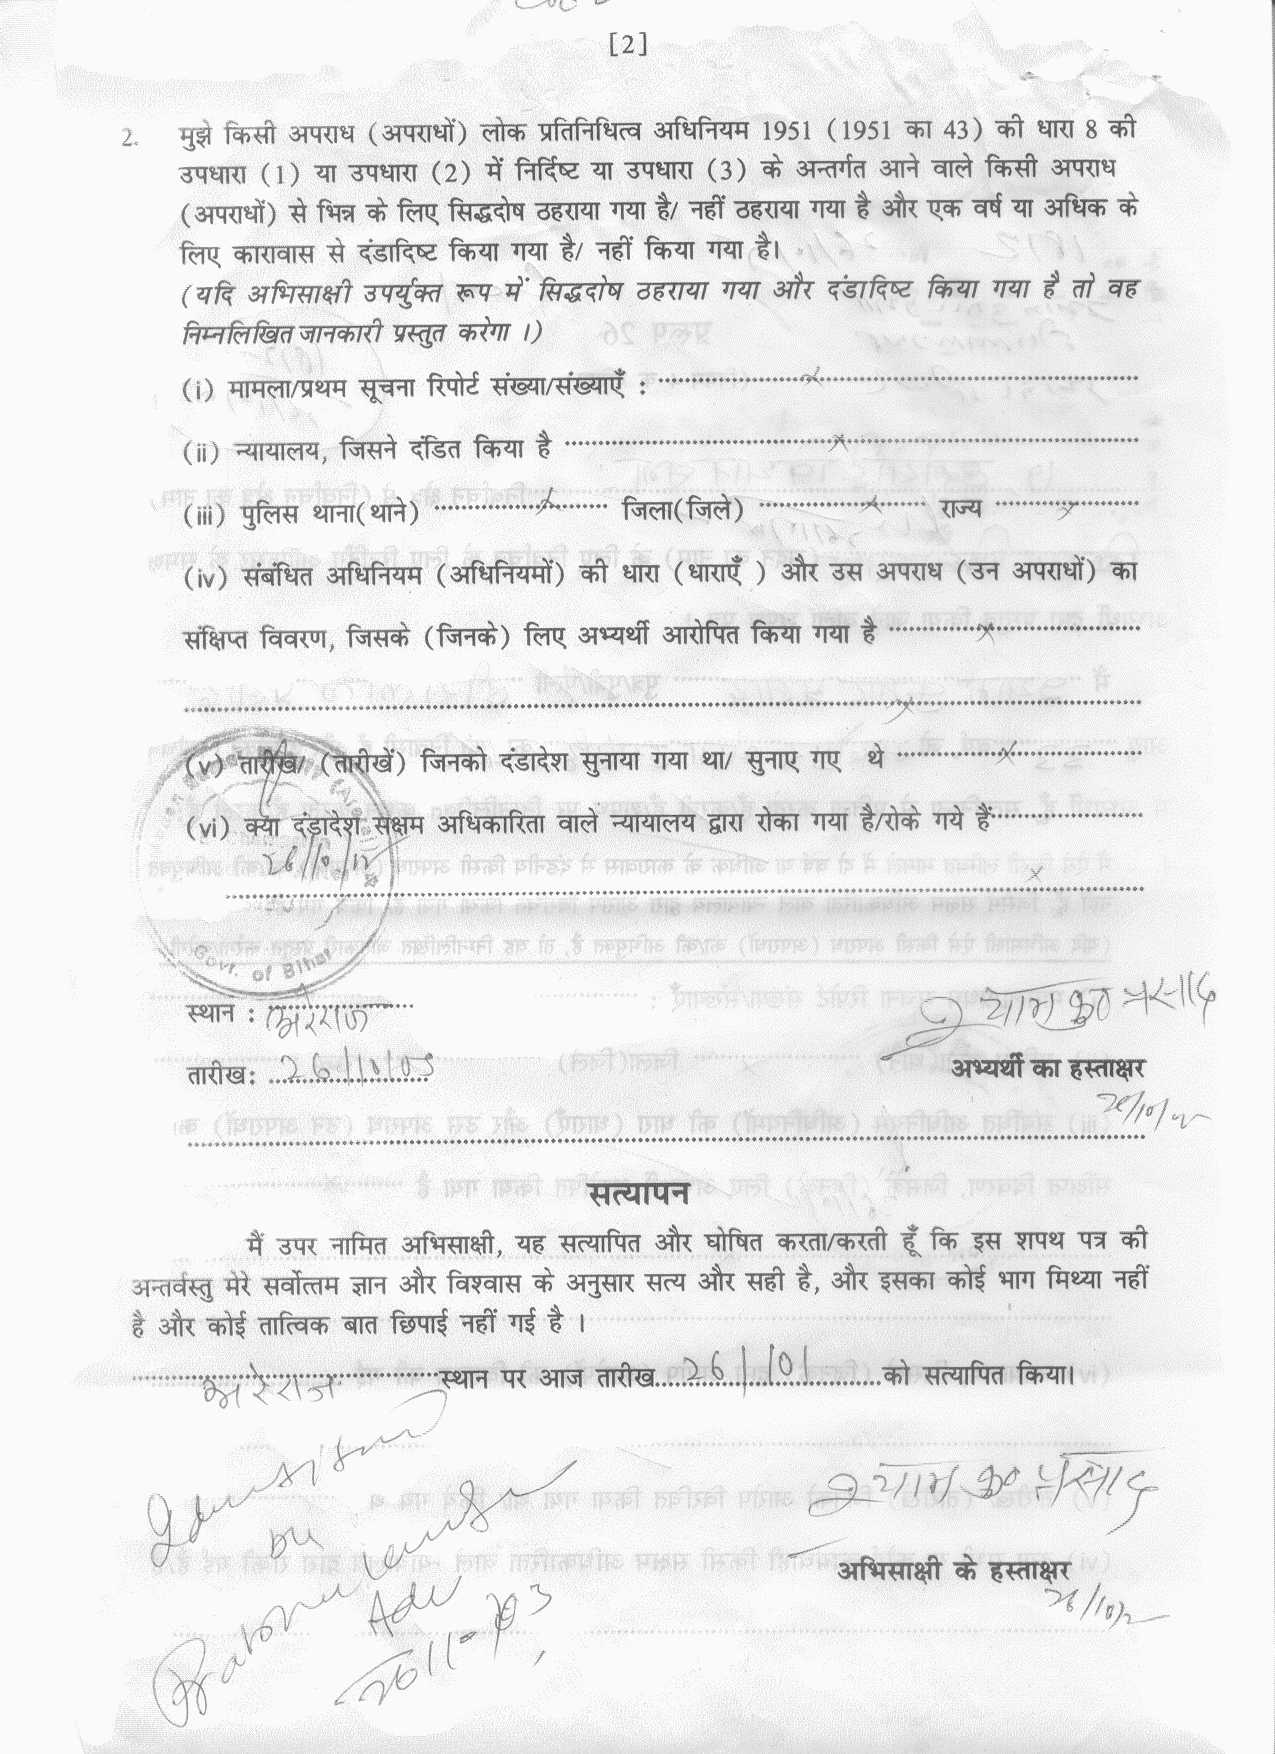 [2]
2. मुझे किसी अपराध (अपराधों) लोक प्रतिनिधित्व अधिनियम 1951 (1951 का 43) की धारा 8 की
उपधारा (1) या उपधारा (2) में निर्दिष्ट या उपधारा (3) के अन्तर्गत आने वाले किसी अपराध
(अपराधों) से भिन्न के लिए सिद्धदोष ठहराया गया है/ नहीं ठहराया गया है और एक वर्ष या अधिक के
लिए कारावास से दंडादिष्ट किया गया है/ नहीं किया गया है।
(यदि अभिसाक्षी उपर्युक्त रूप में सिद्धदोष ठहराया गया और दंडादिष्ट किया गया है तो वह
निम्नलिखित जानकारी प्रस्तुत करेगा ।)
(i) मामला/प्रथम सूचना रिपोर्ट संख्या/संख्याएँ : x
(ii) न्यायालय, जिसने दंडित किया है x
(iii) पुलिस थाना(थाने) x जिला(जिले) x राज्य x
(iv) संबंधित अधिनियम (अधिनियमों) की धारा (धाराएँ ) और उस अपराध (उन अपराधों) का
संक्षिप्त विवरण, जिसके (जिनके) लिए अभ्यर्थी आरोपित किया गया है x
x
(v) तारीख/ (तारीखें) जिनको दंडादेश सुनाया गया था/ सुनाए गए थे x
(vi) क्या दंडादेश सक्षम अधिकारिता वाले न्यायालय द्वारा रोका गया है/रोके गये हैं
x
Govt. of Bihar
स्थान : अरेराज
तारीख: 26/10/05
श्याम कु० प्रसाद
अभ्यर्थी का हस्ताक्षर
सत्यापन
मैं उपर नामित अभिसाक्षी, यह सत्यापित और घोषित करता/करती हूँ कि इस शपथ पत्र की
अन्तर्वस्तु मेरे सर्वोत्तम ज्ञान और विश्वास के अनुसार सत्य और सही है, और इसका कोई भाग मिथ्या नहीं
है और कोई तात्विक बात छिपाई नहीं गई है ।
अरेराज स्थान पर आज तारीख 26/10/ को सत्यापित किया।
श्याम कु० प्रसाद
अभिसाक्षी के हस्ताक्षर
Adv